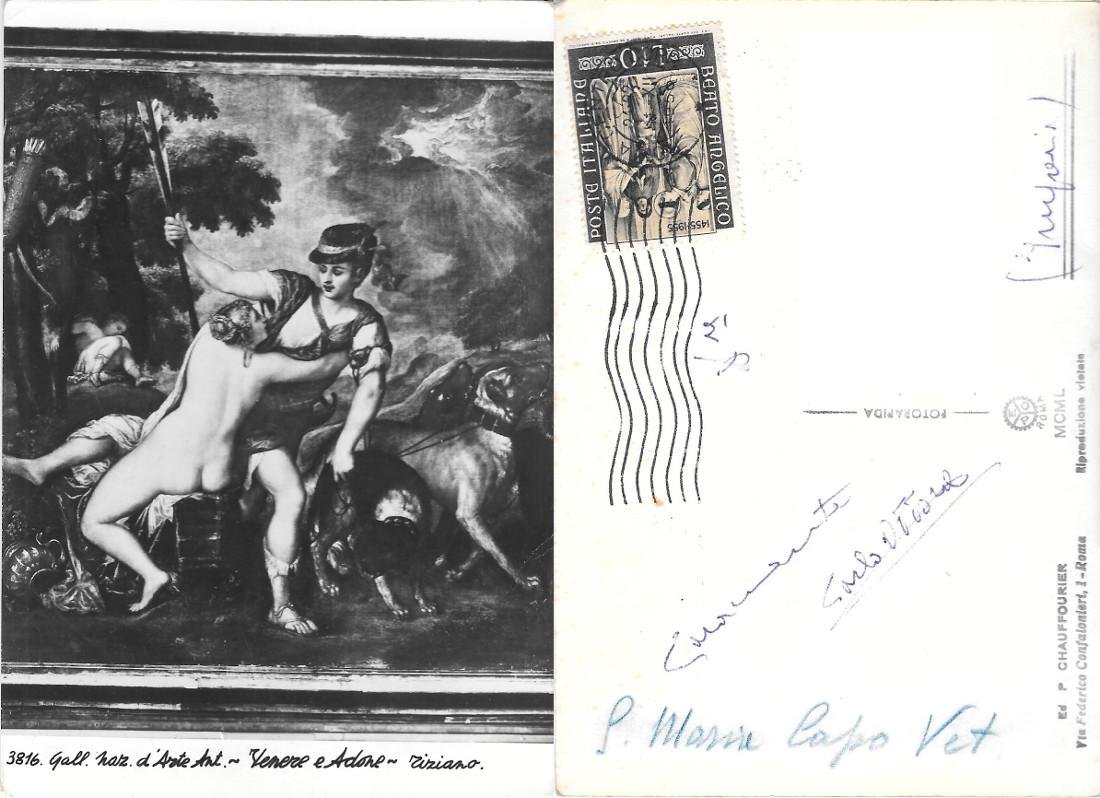 3816. Gall. Naz. d'Arte Ant. ~ Venere e Adone ~ Tiziano.
POSTE ITALIANE
L10
BEATO ANGELICO
1455-1955
FOTORAPIDA
E O P
ROMA
MCML
Riproduzione vietata
Ed P CHAUFFOURIER
Via Federico Confalonieri, 1 - Roma
Caramente
Carlo Vittorio
S. Maria Capo Vet